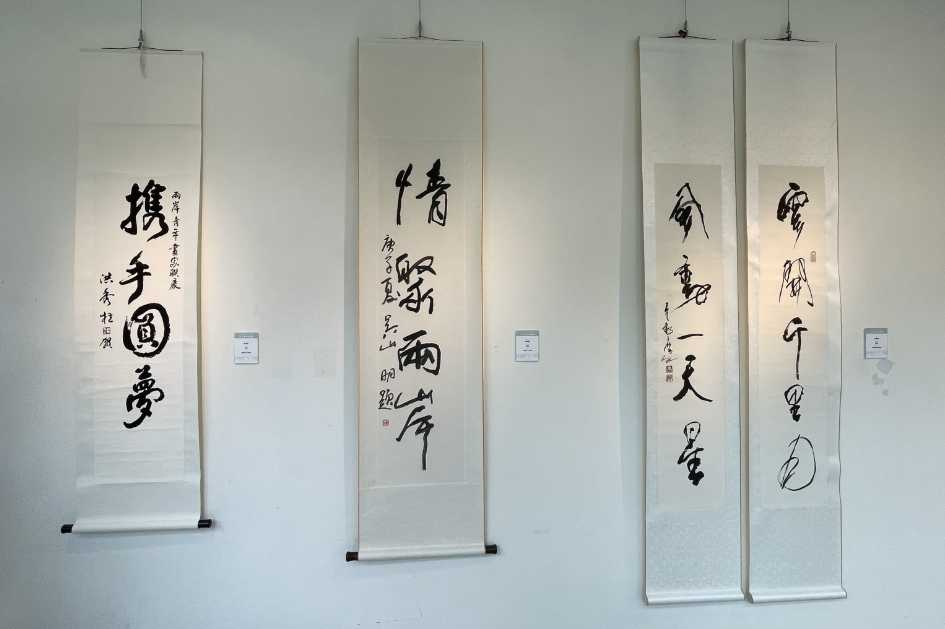 兩岸青年畫家聯展
携手圓夢
洪秀柱賀
情聚兩岸
庚子夏吴山明題
雲開千里月
風動一天星